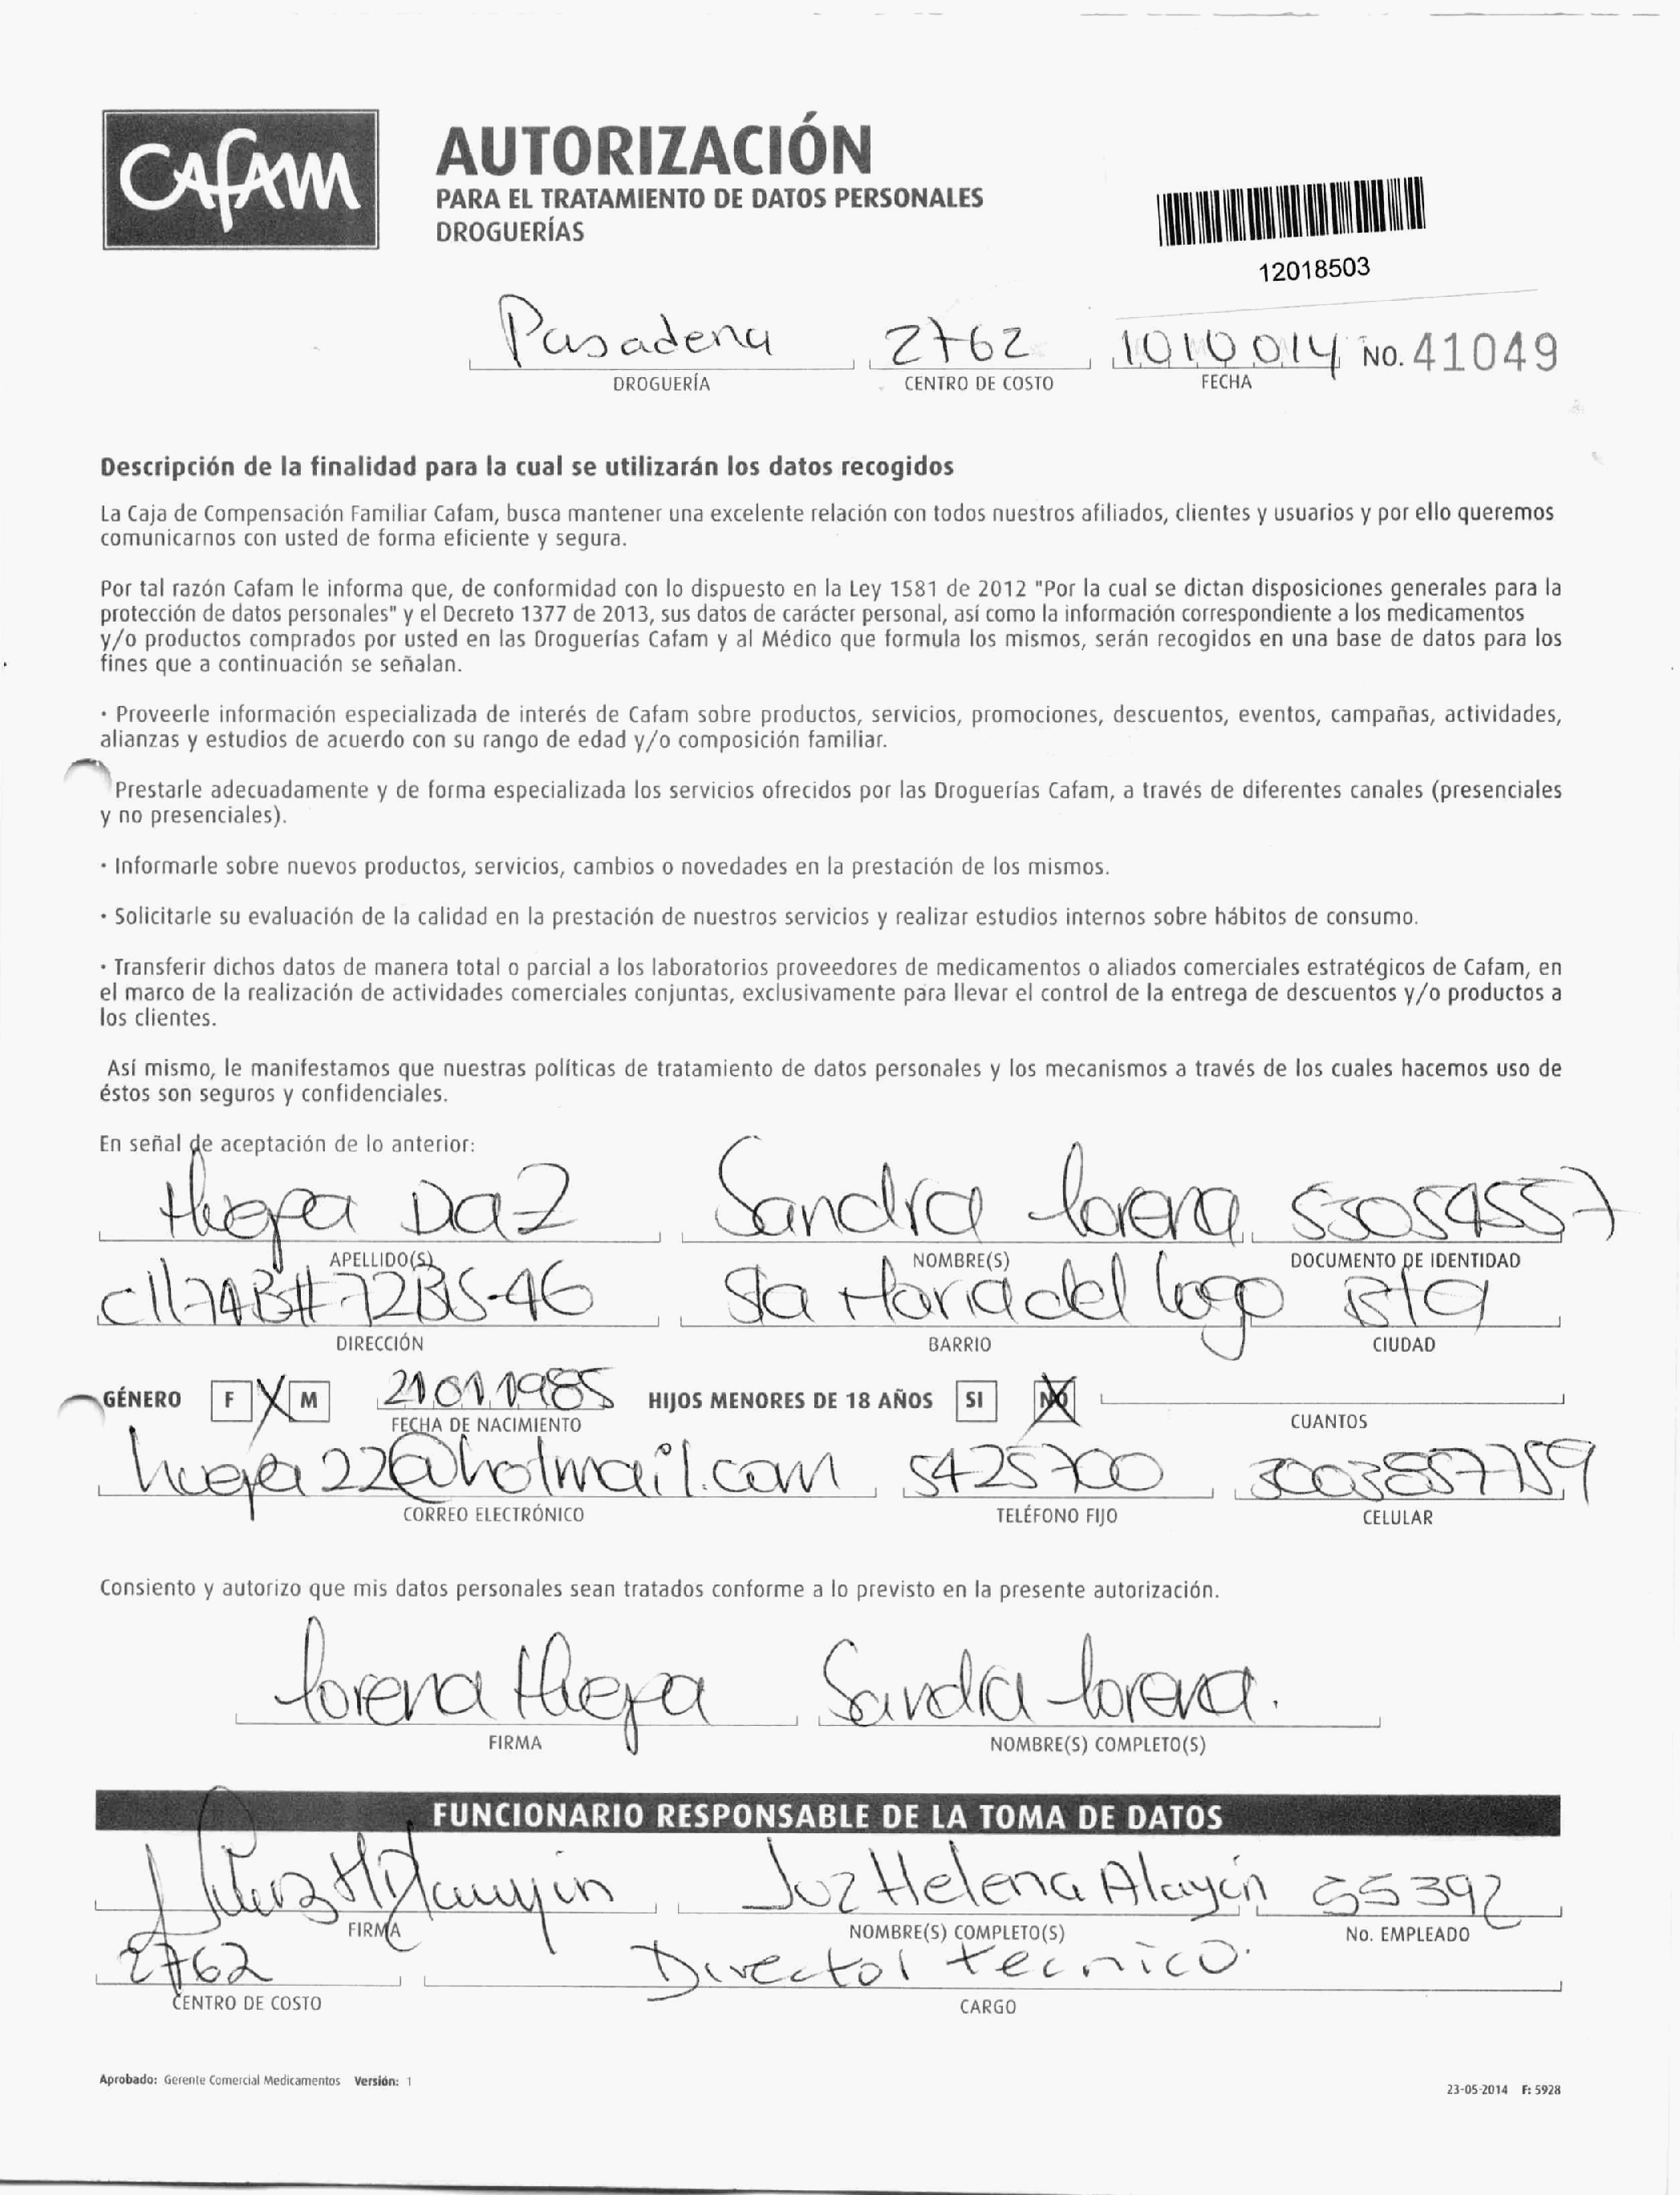 CAFAM
AUTORIZACIÓN
PARA EL TRATAMIENTO DE DATOS PERSONALES
DROGUERÍAS
12018503
Pasadena 2762 1010014 No. 41049
DROGUERÍA CENTRO DE COSTO FECHA
Descripción de la finalidad para la cual se utilizarán los datos recogidos
La Caja de Compensación Familiar Cafam, busca mantener una excelente relación con todos nuestros afiliados, clientes y usuarios y por ello queremos
comunicarnos con usted de forma eficiente y segura.
Por tal razón Cafam le informa que, de conformidad con lo dispuesto en la Ley 1581 de 2012 "Por la cual se dictan disposiciones generales para la
protección de datos personales" y el Decreto 1377 de 2013, sus datos de carácter personal, así como la información correspondiente a los medicamentos
y/o productos comprados por usted en las Droguerías Cafam y al Médico que formula los mismos, serán recogidos en una base de datos para los
fines que a continuación se señalan.
· Proveerle información especializada de interés de Cafam sobre productos, servicios, promociones, descuentos, eventos, campañas, actividades,
alianzas y estudios de acuerdo con su rango de edad y/o composición familiar.
Prestarle adecuadamente y de forma especializada los servicios ofrecidos por las Droguerías Cafam, a través de diferentes canales (presenciales
y no presenciales).
· Informarle sobre nuevos productos, servicios, cambios o novedades en la prestación de los mismos.
· Solicitarle su evaluación de la calidad en la prestación de nuestros servicios y realizar estudios internos sobre hábitos de consumo.
· Transferir dichos datos de manera total o parcial a los laboratorios proveedores de medicamentos o aliados comerciales estratégicos de Cafam, en
el marco de la realización de actividades comerciales conjuntas, exclusivamente para llevar el control de la entrega de descuentos y/o productos a
los clientes.
Así mismo, le manifestamos que nuestras políticas de tratamiento de datos personales y los mecanismos a través de los cuales hacemos uso de
éstos son seguros y confidenciales.
En señal de aceptación de lo anterior:
Sandra lorena
APELLIDO(S) NOMBRE(S) DOCUMENTO DE IDENTIDAD
Sta Maria del lago Bta
DIRECCIÓN BARRIO CIUDAD
GÉNERO F X M 21011985 HIJOS MENORES DE 18 AÑOS SI NO
FECHA DE NACIMIENTO CUANTOS
5425700 3003857759
CORREO ELECTRÓNICO TELÉFONO FIJO CELULAR
Consiento y autorizo que mis datos personales sean tratados conforme a lo previsto en la presente autorización.
lorena Sandra lorena.
FIRMA NOMBRE(S) COMPLETO(S)
FUNCIONARIO RESPONSABLE DE LA TOMA DE DATOS
Luz Helena Alayón 55392
FIRMA NOMBRE(S) COMPLETO(S) No. EMPLEADO
2762 Director tecnico.
CENTRO DE COSTO CARGO
Aprobado: Gerente Comercial Medicamentos Versión: 1
23-05-2014 F: 5928